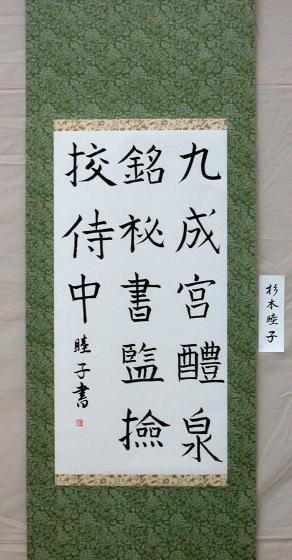 九成宮醴泉
銘祕書監撿
挍侍中
睦子書
杉本睦子